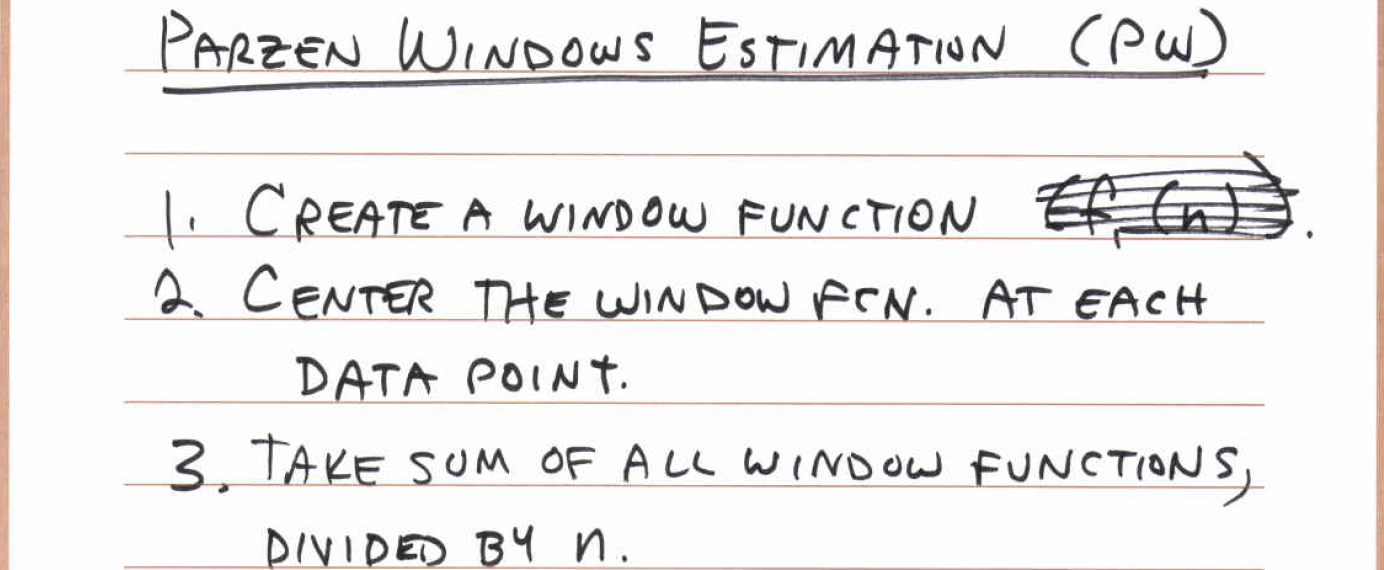 PARZEN WINDOWS ESTIMATION (PW)
1. CREATE A WINDOW FUNCTION .
2. CENTER THE WINDOW FCN. AT EACH
DATA POINT.
3. TAKE SUM OF ALL WINDOW FUNCTIONS,
DIVIDED BY n.